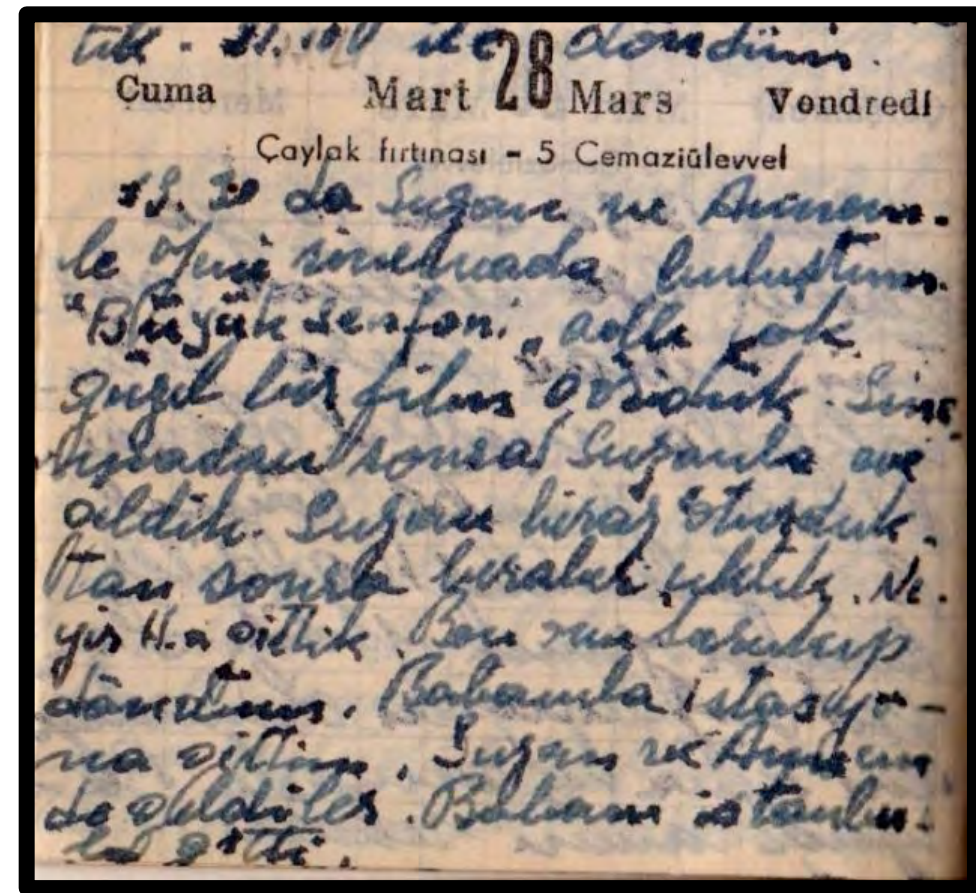 tık. 21.10 ile döndüm.
Cuma Mart 28 Mars Vendredi
Çaylak fırtınası - 5 Cemaziülevvel
15.30 da Suzan ve Annem-
le Yeni sinemada buluştum.
"Büyük senfoni" adlı çok
güzel bir film gördük. Sine
madan sonra Suzanla eve
geldik. Suzan biraz oturduk.
tan sonra beraber çıktık. Ne.
yir H.a gittik. Ben
döndüm. Babamla istasyo-
na gittim. Suzan ve Annem
de geldiler. Babam istanbu-
la gitti.